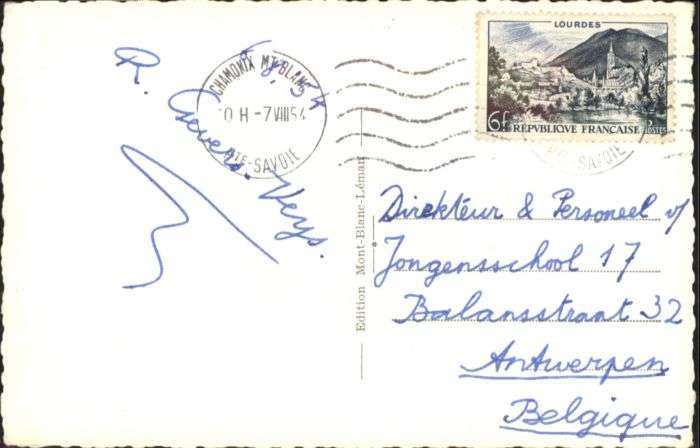 CHAMONIX MT BLANC
-7 VIII 54
HTE-SAVOIE
R.
Verys.
LOURDES
6f RÉPUBLIQUE FRANÇAISE POSTES
Edition Mont-Blanc-Léman
Direkteur & Personeel v/
Jongensschool 17
Balansstraat 32
Antwerpen
Belgique